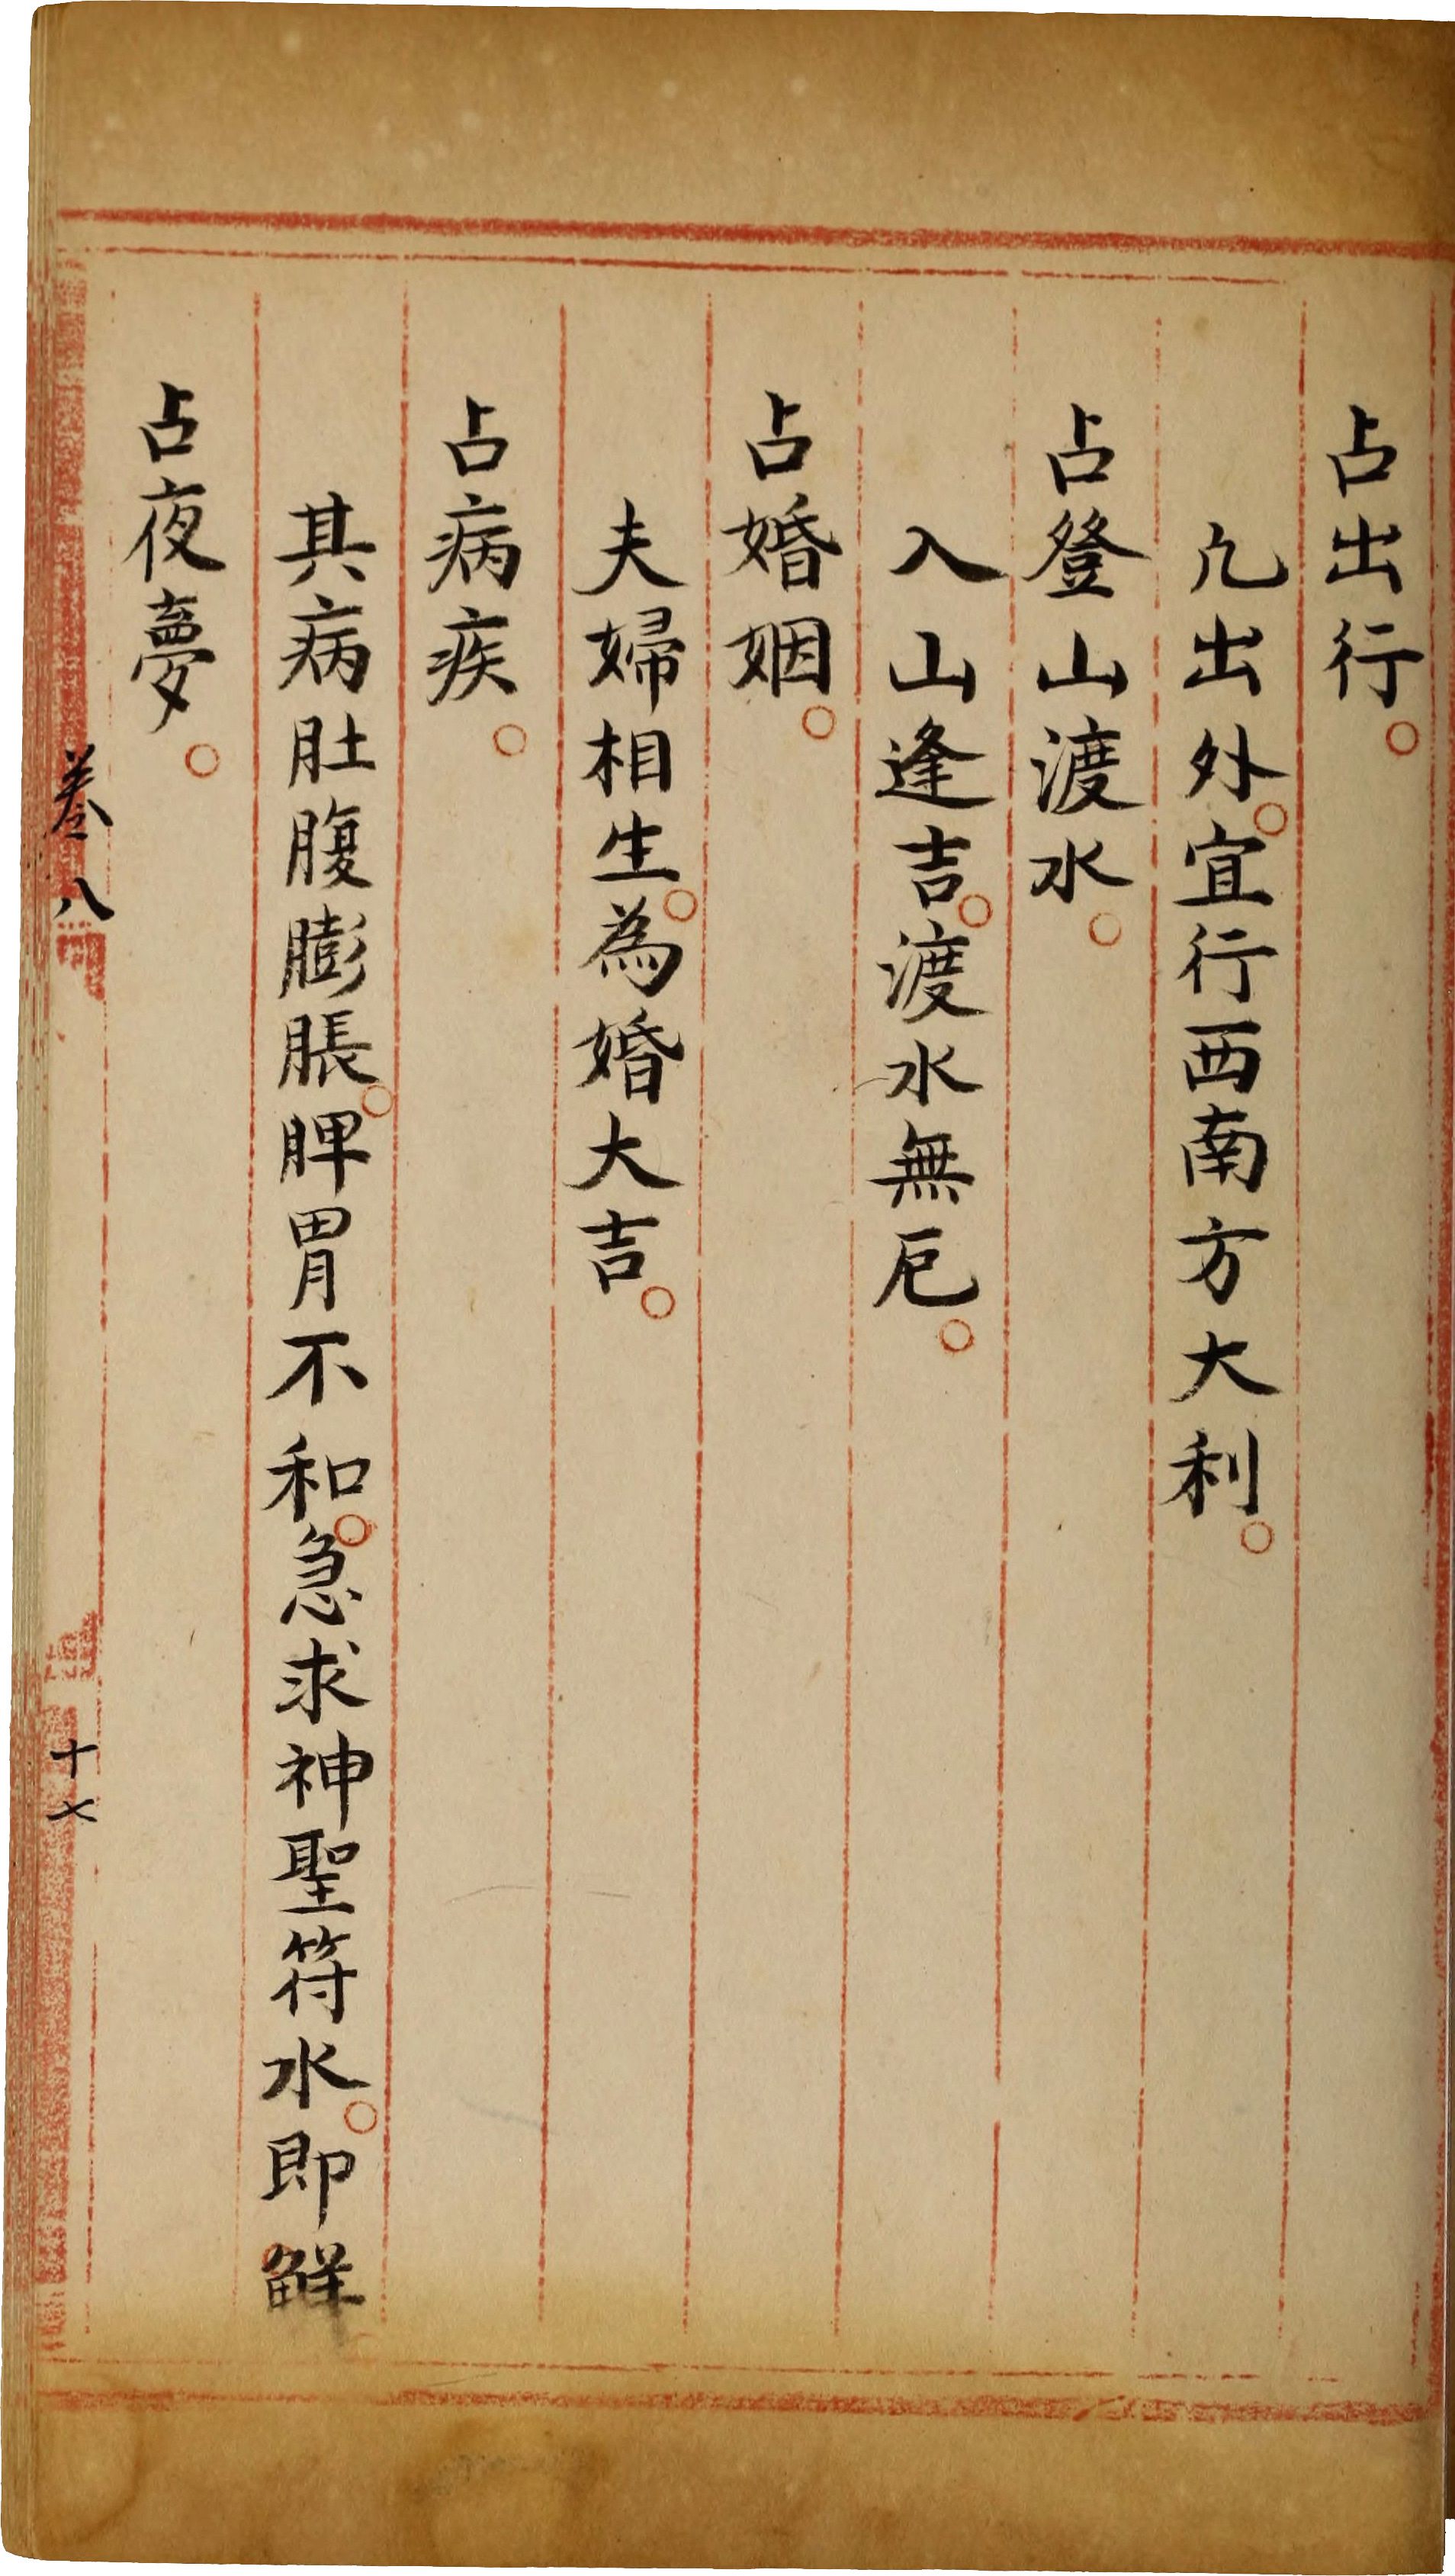 占出行。
凢出外。宜行西南方大利。
占登山渡水。
入山逢吉。渡水無厄。
占婚姻。
夫婦相生。為婚大吉。
占病疾。
其病肚腹膨脹。脾胃不和。急求神聖符水。即觧
占夜夢。
卷八
十七